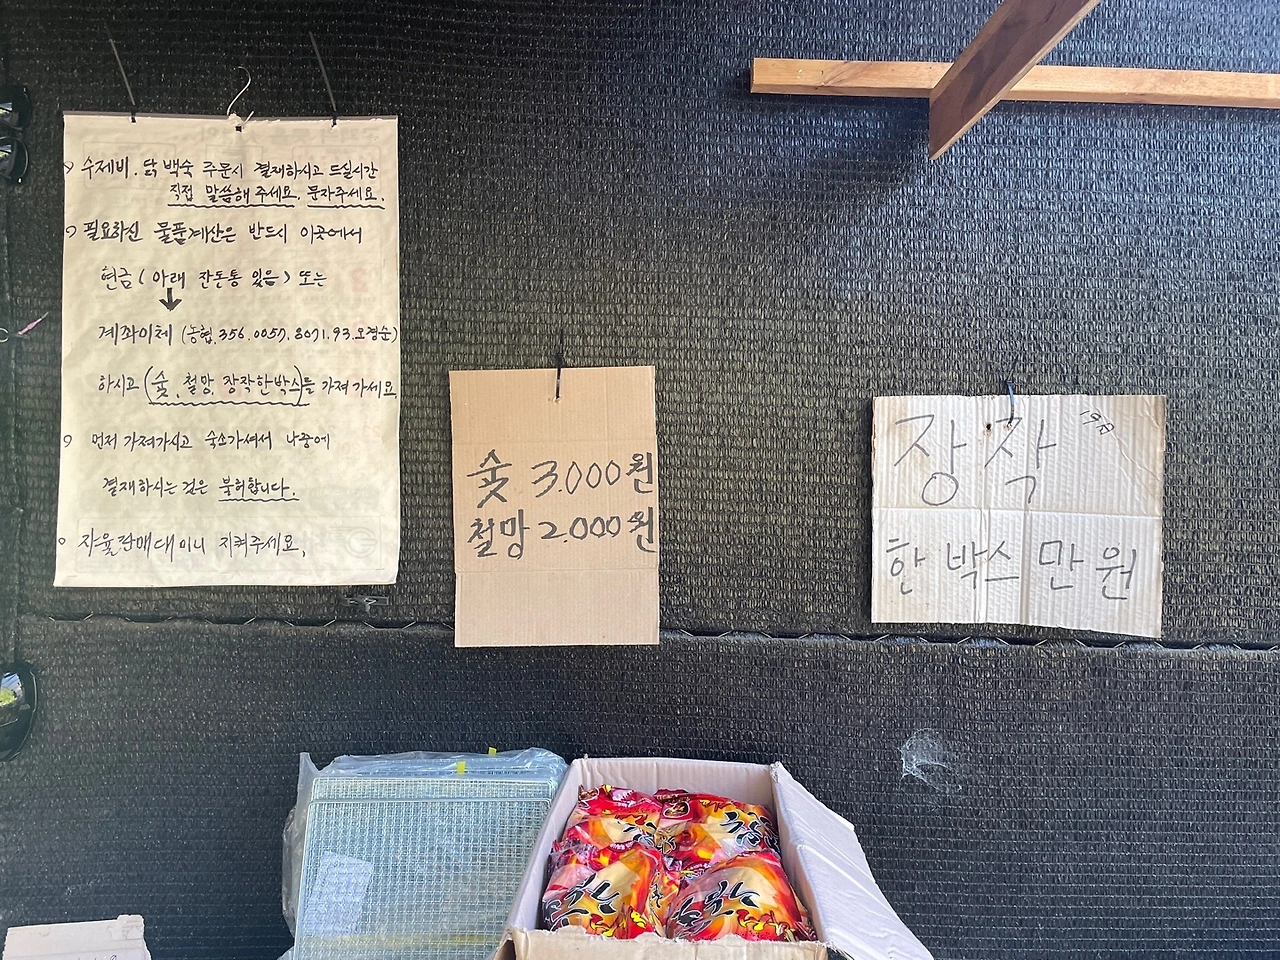 수제비. 닭 백숙 주문시 결재하시고 드실시간
직접 말씀해 주세요. 문자주세요.
필요하신 물품계산은 반드시 이곳에서
현금 ( 아래 잔돈통 있음 ) 또는
계좌이체 (농협. 356. 0057. 8071. 93. 오경순)
하시고 (숯, 철망, 장작한박스)를 가져 가세요
먼저 가져가시고 숙소가셔서 나중에
결재하시는 것은 불허합니다.
자율판매대이니 지켜주세요.
숯 3.000원
철망 2.000원
장작
한 박스 만 원